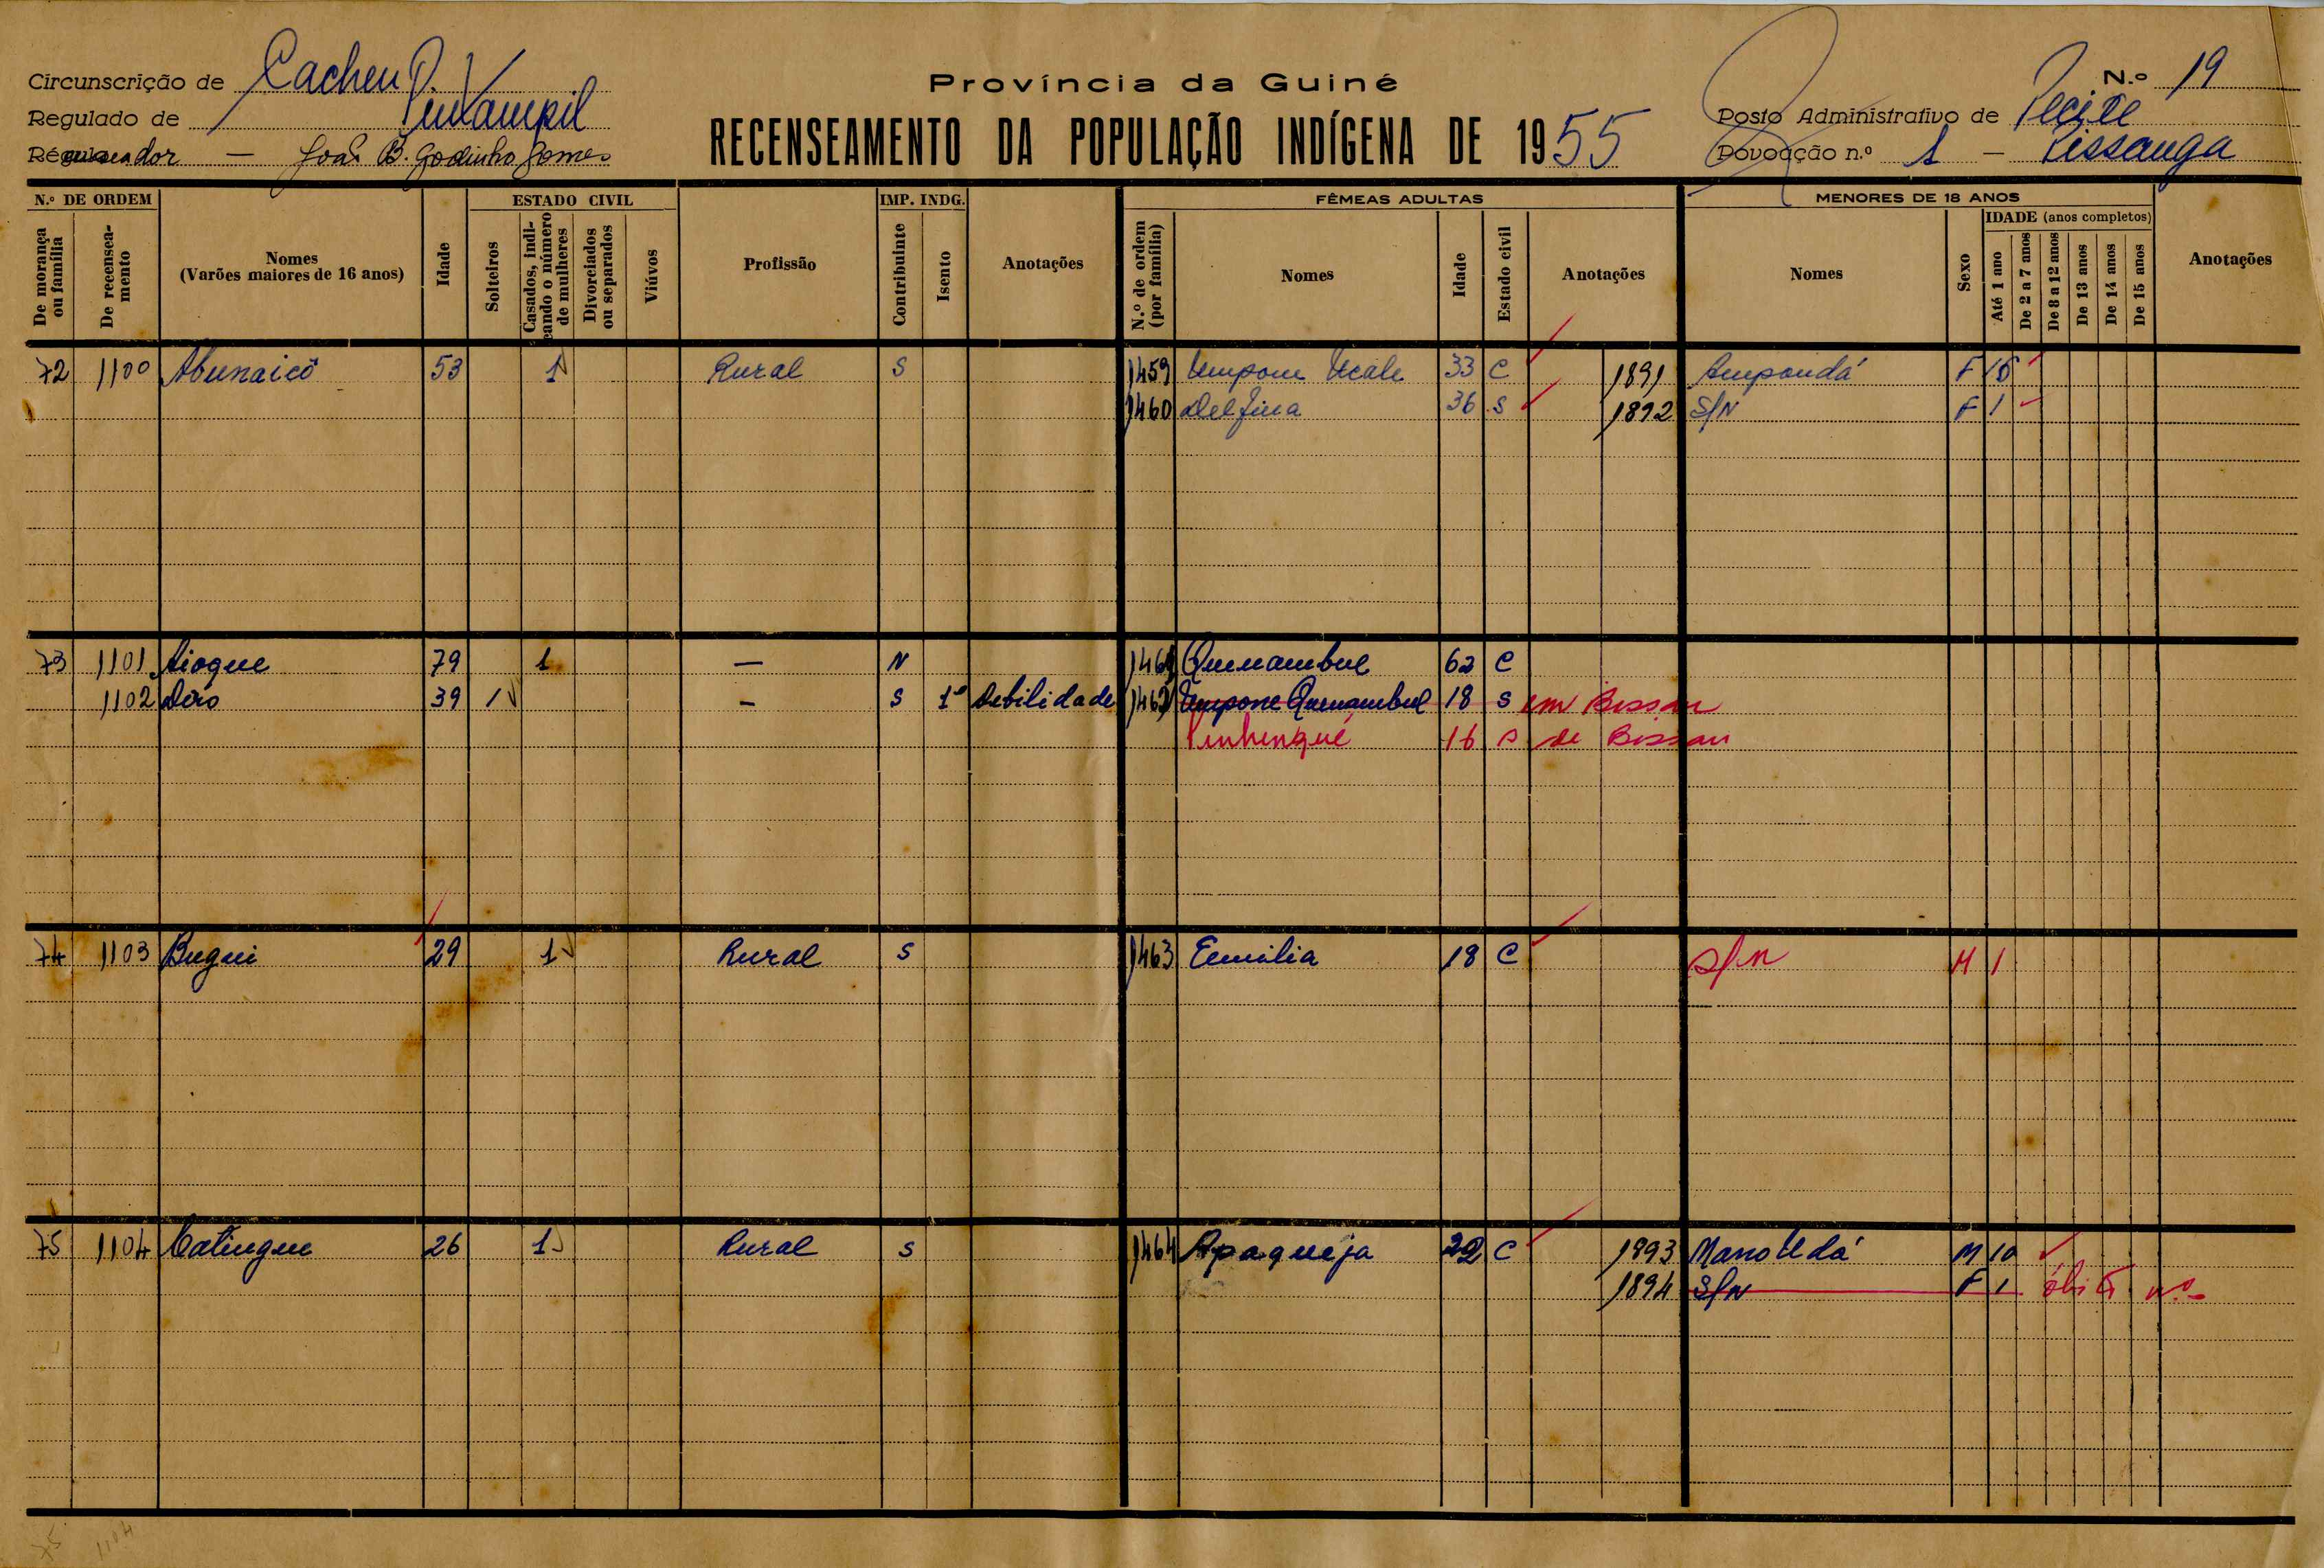 Circunscrição de Cacheu
Província da Guiné
N.º 19
Regulado de
RECENSEAMENTO DA POPULAÇÃO INDÍGENA DE 1955
Posto Administrativo de Pecixe
João B. Godinho Gomes
Povoação n.º 1 –
N.º DE ORDEM
ESTADO CIVIL
IMP. INDG.
FÊMEAS ADULTAS
MENORES DE 18 ANOS
De morança ou família
De recenseamento
Nomes
(Varões maiores de 16 anos)
Idade
Solteiros
Casados, indicando o número de mulheres
Divorciados ou separados
Viúvos
Profissão
Contribuinte
Isento
Anotações
N.º de ordem (por família)
Nomes
Idade
Estado civil
Anotações
Nomes
Sexo
IDADE (anos completos)
Até 1 ano
De 2 a 7 anos
De 8 a 12 anos
De 13 anos
De 14 anos
De 15 anos
Anotações
72 1100 Abunaicó 53 1 Rural S 1459 33 C 1891 Ampondá F
1460 Delfina 36 S 1892 S/N F 1
73 1101 Aioque 79 1 — N 1461 Quenambul 62 C
1102 39 1 – S 1º Debilidade 1462 Umpone Quenambul 18 S em Bissau
16 S de Bissau
74 1103 Bugui 29 1 Rural S 1463 Emilia 18 C S/N M 1
75 1104 Catingue 26 1 Rural S 1464 Apaqueja 22 C 1893 Mano Udá M 10
1894 S/N F 1 óbito n.º
75 1104